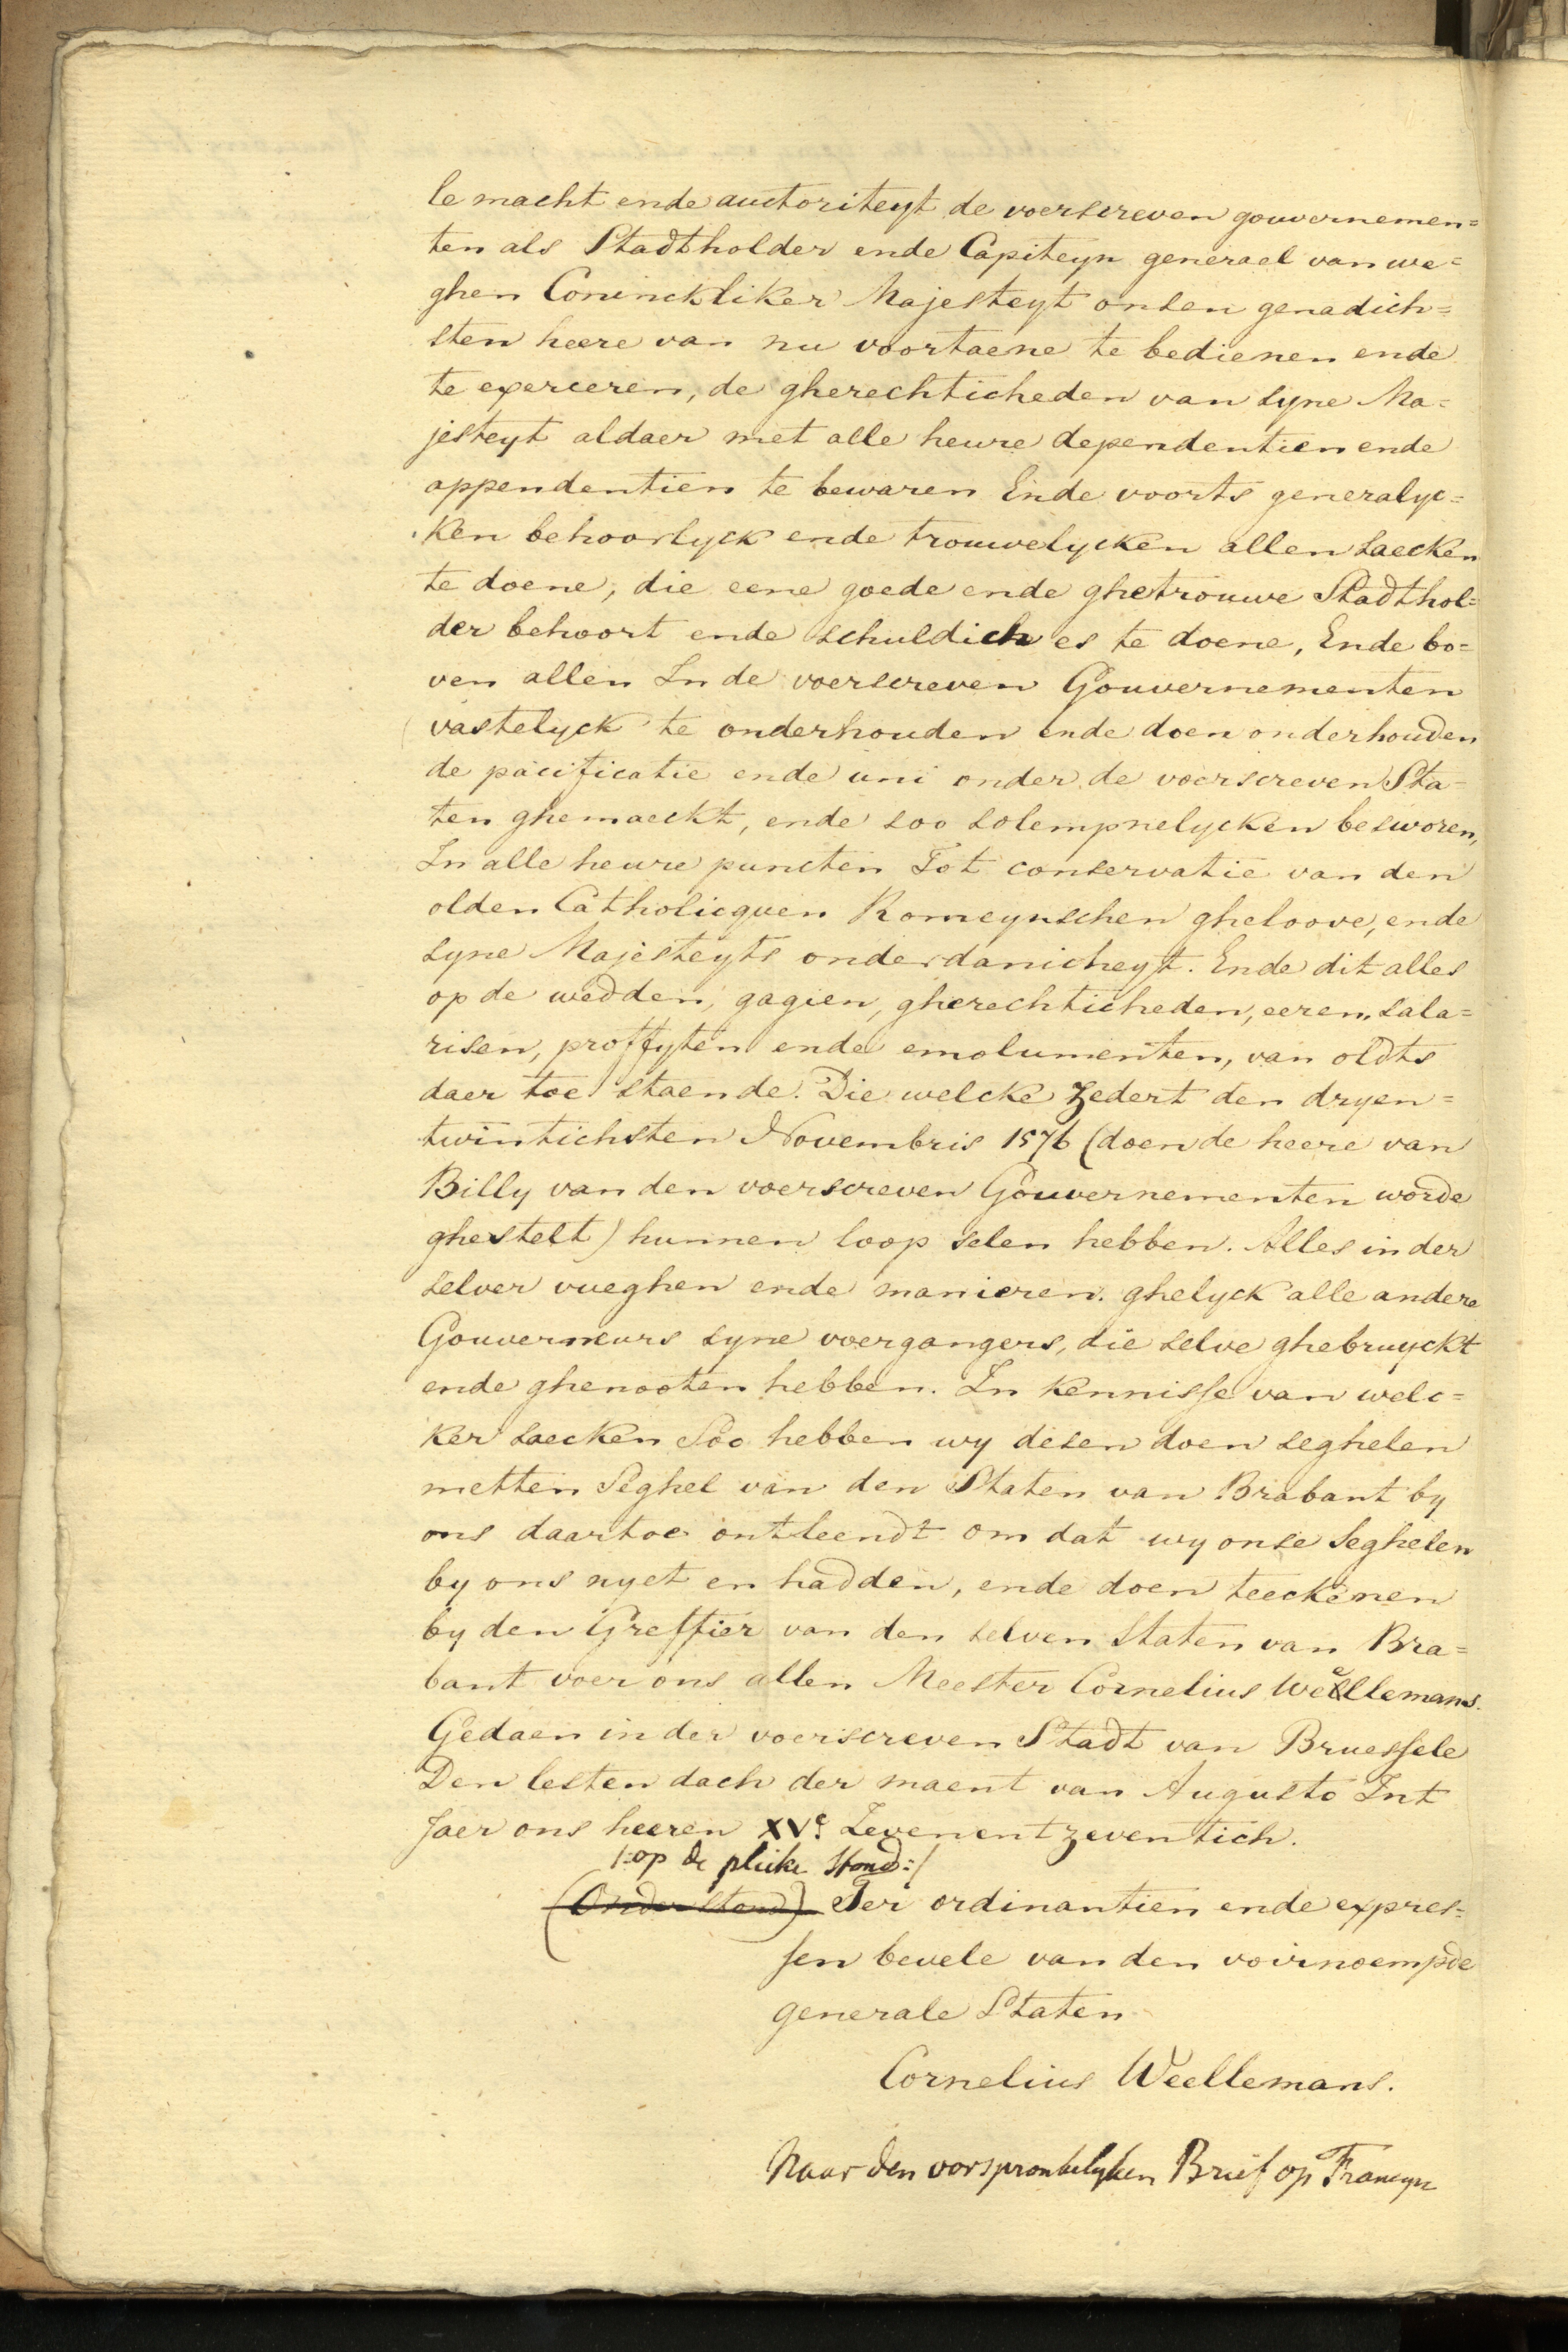 le macht ende auctoriteyt de voerscreven gouvernemen=
ten als Stadtholder ende Capiteyn generael van we=
ghen Coninckliker Majesteyt onsen genadich=
sten heere van nu voortaene te bedienen ende
te exerceren, de gherechticheden van syne Ma=
jesteyt aldaer met alle heure dependentien ende
appendentien te bewaren Ende voorts generalyc=
ken behoorlyck ende trouwelycken allen saecken
te doene, die eene goede ende ghetrouwe Stadthol=
der behoort ende schuldich es te doene, Ende bo=
ven allen In de voerscreven Gouvernementen
vastelyck te onderhouden ende doen onderhouden
de pacificatie ende uni onder de voerscreven Sta=
ten ghemaeckt, ende soo solempnelycken besworen,
In alle heure puncten Tot conservatie van den
olden Catholicquen Romeynschen gheloove, ende
syne Majesteyts onderdanicheyt. Ende dit alles
op de wedden, gagien, gherechticheden, eeren, sala=
risen, proffyten ende emolumenten, van oldts
daer toe staende. Die welcke zedert den dryen=
twintichsten Novembris 1576 (doen de heere van
Billy van den voerscreven Gouvernementen worde
ghestelt) hunnen loop selen hebben. Alles in der
selver vueghen ende manieren. ghelyck alle andere
Gouverneurs syne voergangers, die selve ghebruyckt
ende ghenooten hebben. In kennisse van welc=
ker saecken Soo hebben wy desen doen seghelen
metten Seghel van den Staten van Brabant by
ons daartoe ontleendt om dat wy onse Seghelen
by ons nyet en hadden, ende doen teeckenen
by den Greffier van den selven Staten van Bra=
bant voer ons allen Meester Cornelius Weellemans.
Gedaen in der voerscreven Stadt van Bruessele
Den lesten dach der maent van Augusto Int
Jaer ons heeren XVc Zevenentzeventich.
/:op de plicke stond:/
(Onder stond) Ter ordinantien ende expres=
sen bevele van den voirnoempde
generale Staten
Cornelius Weellemans.
Naar den oorspronkelyken Brief op Francyn